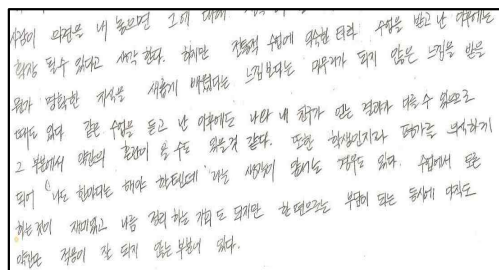 사람이 의견을 내 놓으면 그에 대해
확장 될수 있다고 생각 한다. 하지만 전통적 수업에 익숙한 터라 수업을 받고 난 이후에는
뭔가 명확한 지식을 새롭게 배웠다는 느낌보다는 마무리가 되지 않은 느낌을 받을
때도 있다. 같은 수업을 듣고 난 이후에도 나와 내 친구가 얻는 결과가 다를 수 있으므로
그 부분에서 약간의 혼란이 올 수도 있을것 같다. 또한 학생인지라 평가를 의식하게
되어 '나도 한마디는 해야 한텐데' 라는 생각이 앞서는 경우도 있다. 수업에서 토론
하는것이 재미있고 나름 정리 하는 기회도 되지만 한편으로는 부담이 되는 동시에 아직도
약간은 적응이 잘 되지 않는 부분이 있다.